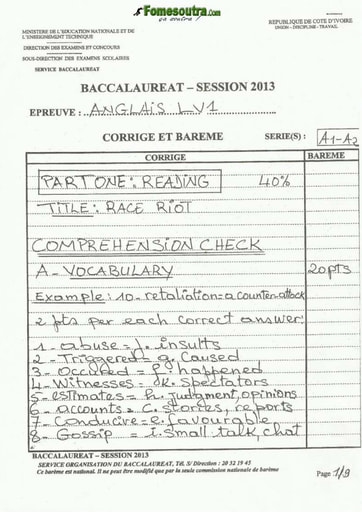 Fomesoutra.com
ça soutra !
MINISTERE DE L'EDUCATION NATIONALE ET DE
L'ENSEIGNEMENT TECHNIQUE
REPUBLIQUE DE COTE D'IVOIRE
UNION – DISCIPLINE - TRAVAIL
DIRECTION DES EXAMENS ET CONCOURS
SOUS-DIRECTION DES EXAMENS SCOLAIRES
SERVICE BACCALAUREAT
BACCALAUREAT – SESSION 2013
EPREUVE : ANGLAIS LV1
CORRIGE ET BAREME SERIE(S) : A1-A2
CORRIGE BAREME
PART ONE : READING 40%
TITLE : RACE RIOT
COMPREHENSION CHECK
A - VOCABULARY 20pts
Example : 10 - retaliation = a counter-attack
2 pts per each correct answer:
1 - abuse = j. insults
2 - Triggered = g. Caused
3 - Occured = f. happened
4 - Witnesses = k. spectators
5 - estimates = h. judgment, opinions
6 - accounts = c. stories, reports
7 - Conducive = e. favourable
8 - Gossip = i. small talk, chat
BACCALAUREAT – SESSION 2013
SERVICE ORGANISATION DU BACCALAUREAT, Tél. S/ Direction : 20 32 19 45
Ce barème est national. Il ne peut être modifié que par la seule commission nationale de barème.
Page 1/9